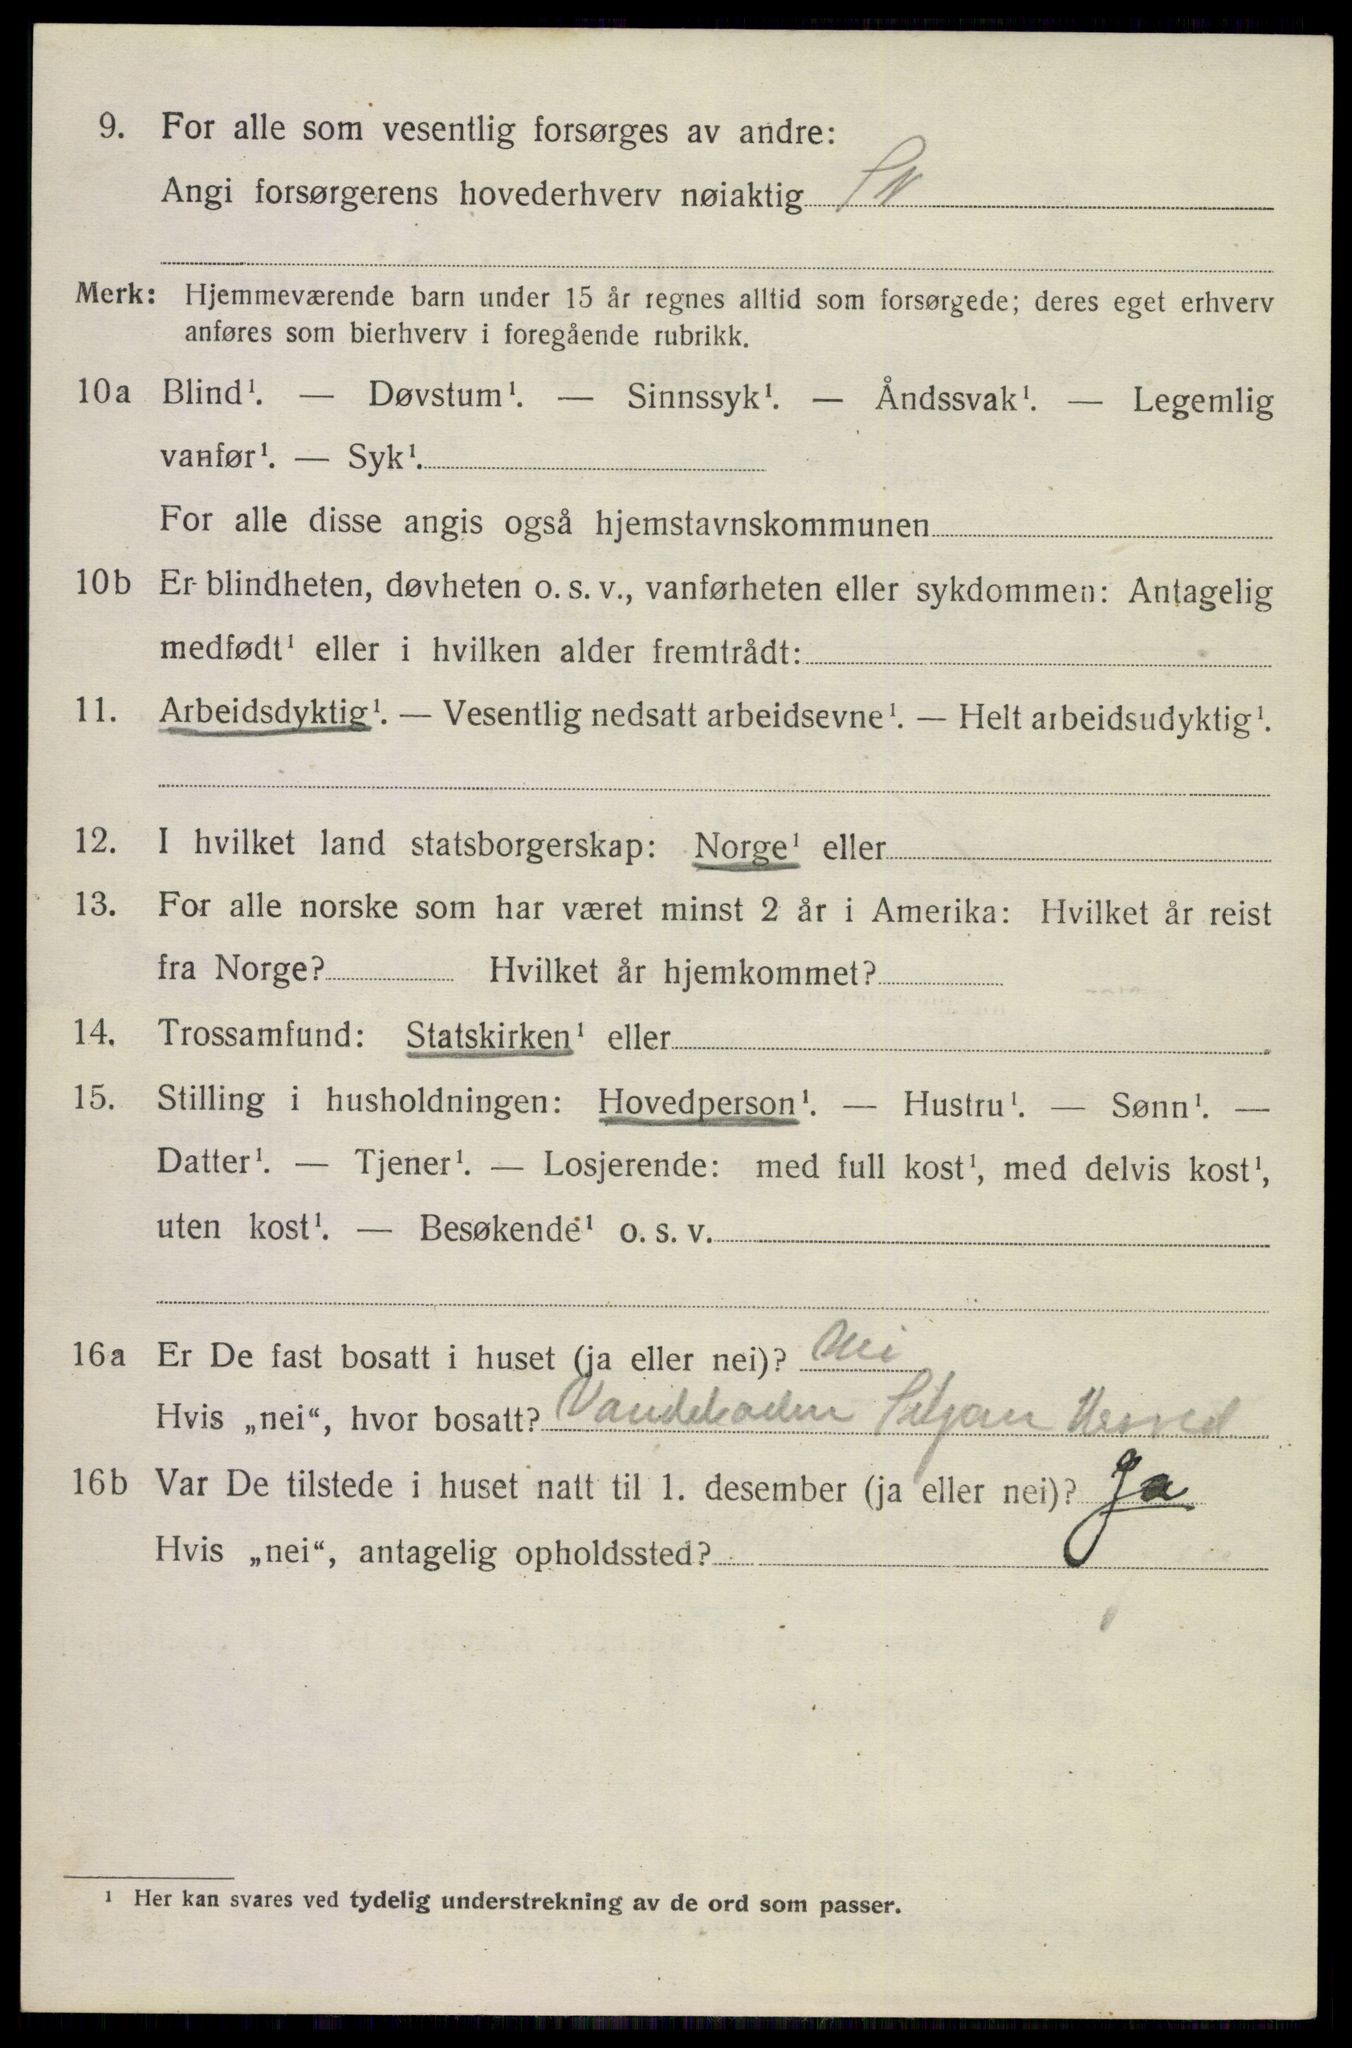 9. For alle som vesentlig forsørges av andre:
Angi forsørgerens hovederhverv nøiaktig
Merk: Hjemmeværende barn under 15 år regnes alltid som forsørgede; deres eget erhverv
anføres som bierhverv i foregående rubrikk.
10a Blind¹. — Døvstum¹. — Sinnssyk¹. — Åndssvak¹. — Legemlig
vanfør¹. — Syk¹.
For alle disse angis også hjemstavnskommunen
10b Er blindheten, døvheten o. s. v., vanførheten eller sykdommen: Antagelig
medfødt¹ eller i hvilken alder fremtrådt:
11. Arbeidsdyktig¹. — Vesentlig nedsatt arbeidsevne¹. — Helt arbeidsudyktig¹.
12. I hvilket land statsborgerskap: Norge¹ eller
13. For alle norske som har været minst 2 år i Amerika: Hvilket år reist
fra Norge? Hvilket år hjemkommet?
14. Trossamfund: Statskirken¹ eller
15. Stilling i husholdningen: Hovedperson¹. — Hustru¹. — Sønn¹. —
Datter¹. — Tjener¹. — Losjerende: med full kost¹, med delvis kost¹,
uten kost¹. — Besøkende¹ o. s. v.
16a Er De fast bosatt i huset (ja eller nei)? Nei
Hvis „nei“, hvor bosatt?
16b Var De tilstede i huset natt til 1. desember (ja eller nei)? Ja
Hvis „nei“, antagelig opholdssted?
¹ Her kan svares ved tydelig understrekning av de ord som passer.